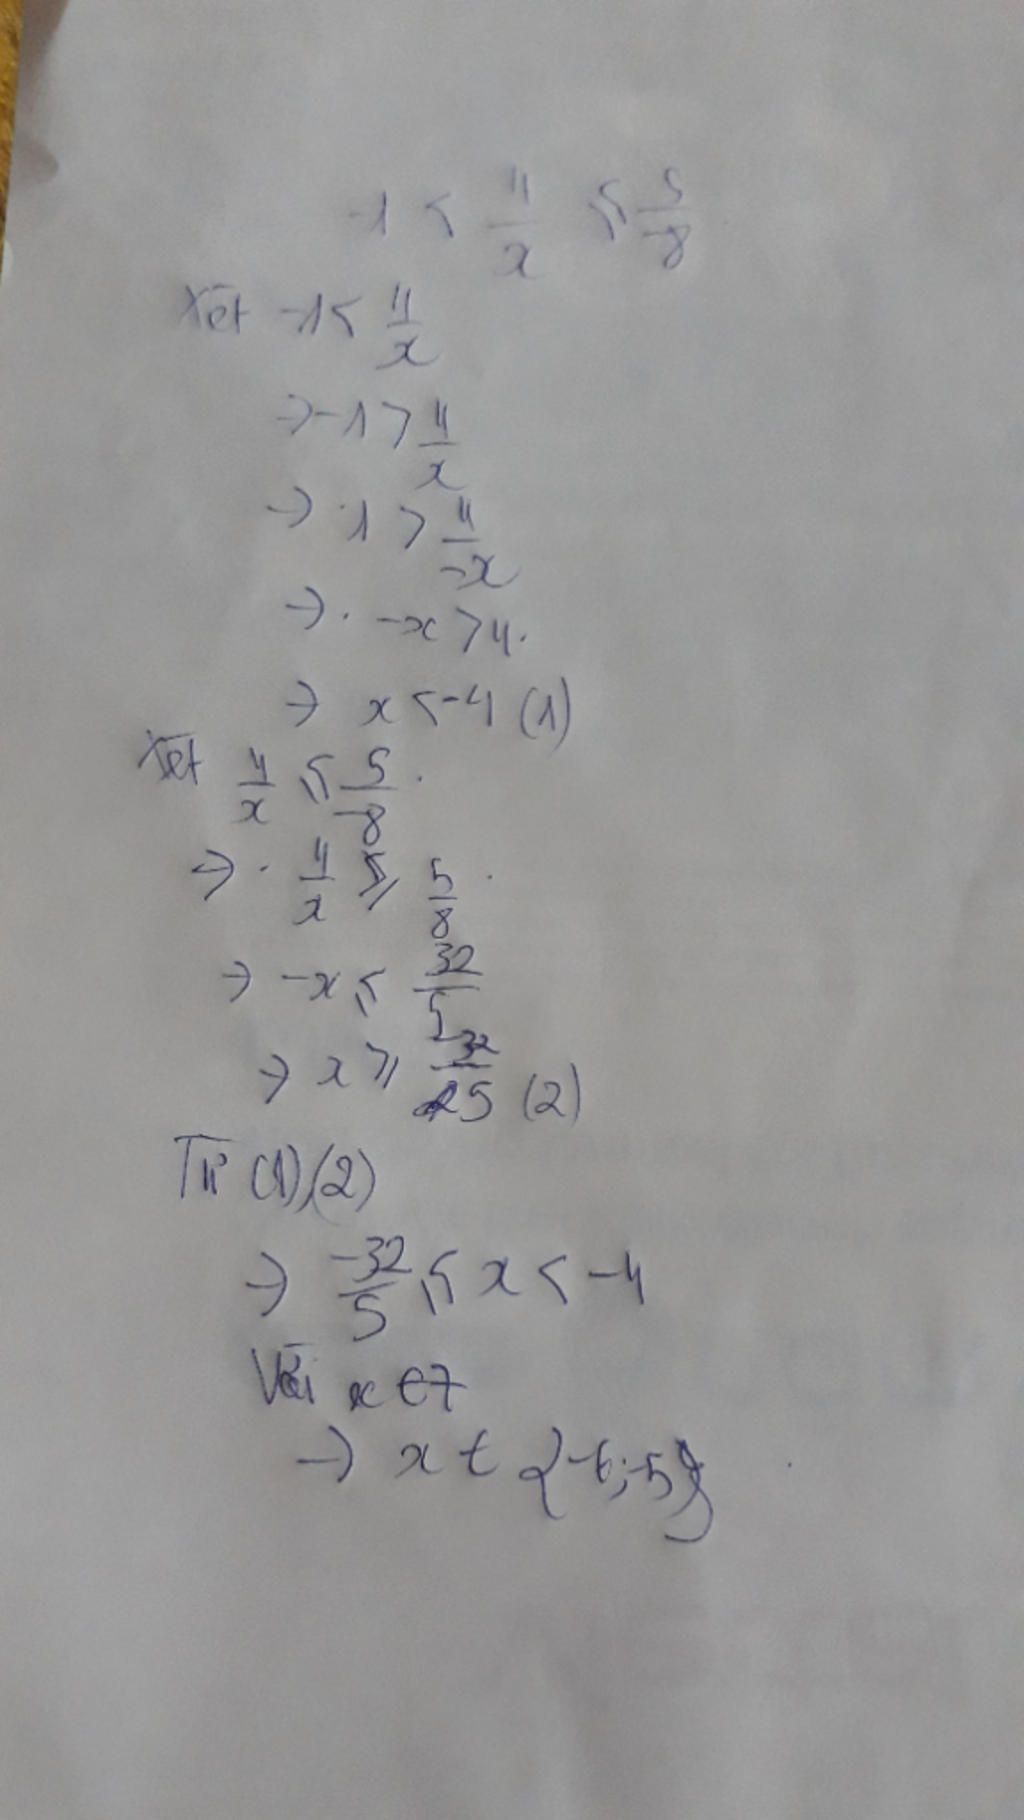 -1 < 4/x ≤ 5/-8
Xét -1 < 4/x
→ -1 > 4/x
→ 1 > 4/-x
→ -x > 4.
→ x < -4 (1)
Xét 4/x ≤ 5/-8
→ 4/x ≥ 5/8
→ -x ≤ 32/5
→ x ≥ -32/5 (2)
Từ (1),(2)
→ -32/5 ≤ x < -4
Với x ∈ Z
→ x ∈ {-6;-5}